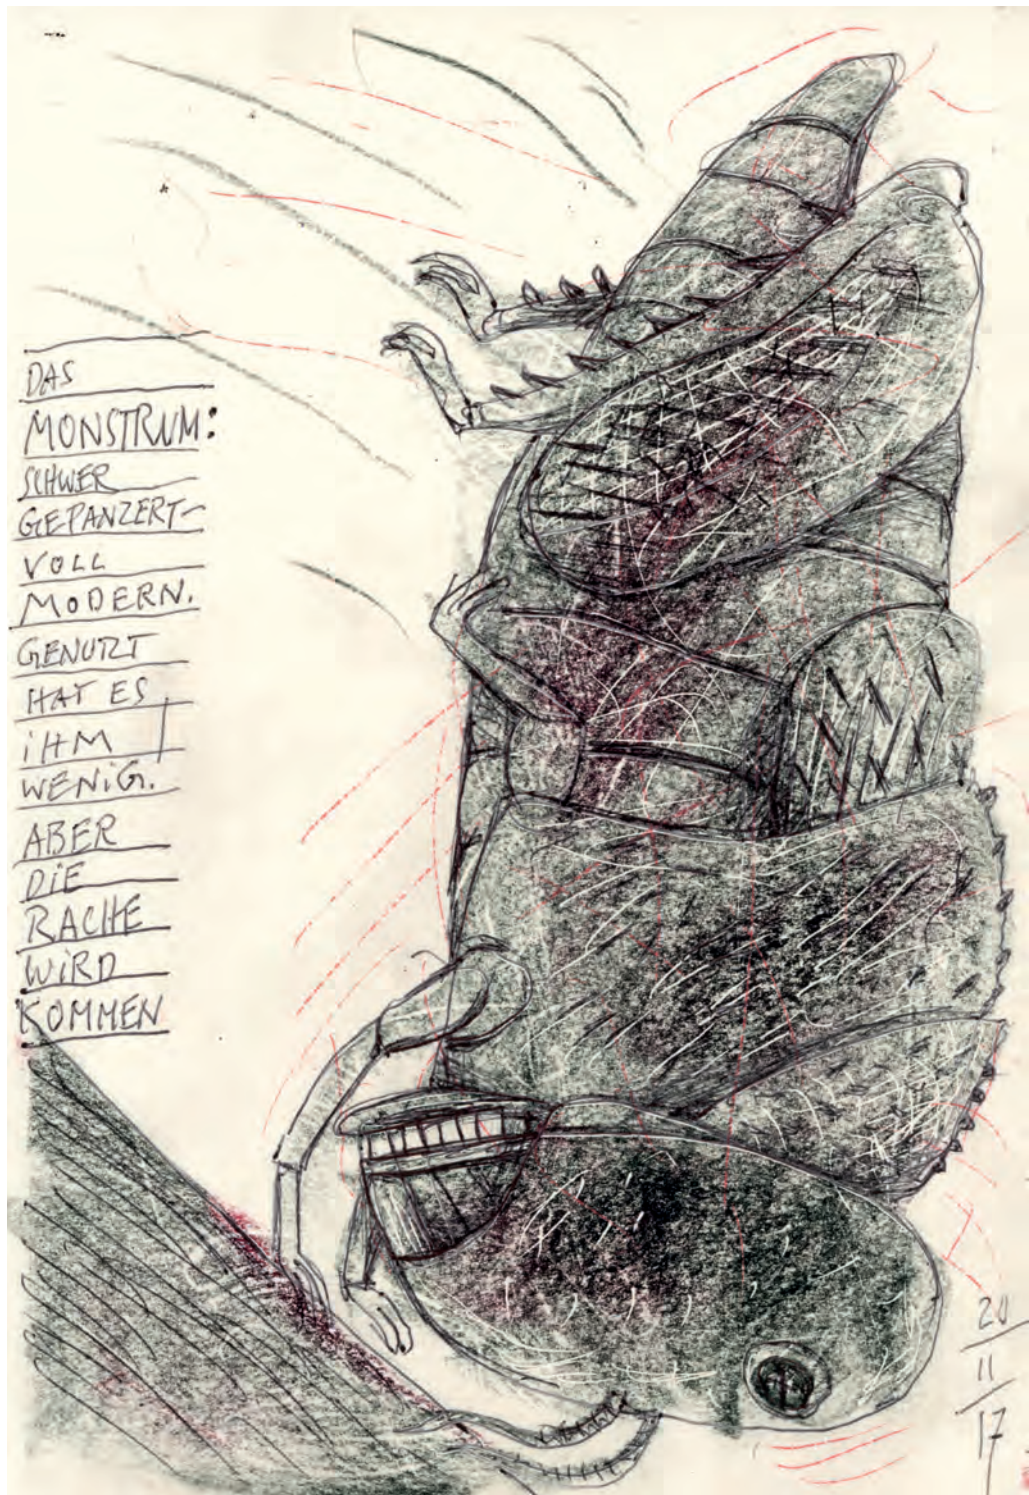 DAS
MONSTRUM:
SCHWER
GEPANZERT-
VOLL
MODERN.
GENUTZT
HAT ES
iHM
WENiG.
ABER
DiE
RACHE
WiRD
KOMMEN
20
11
17